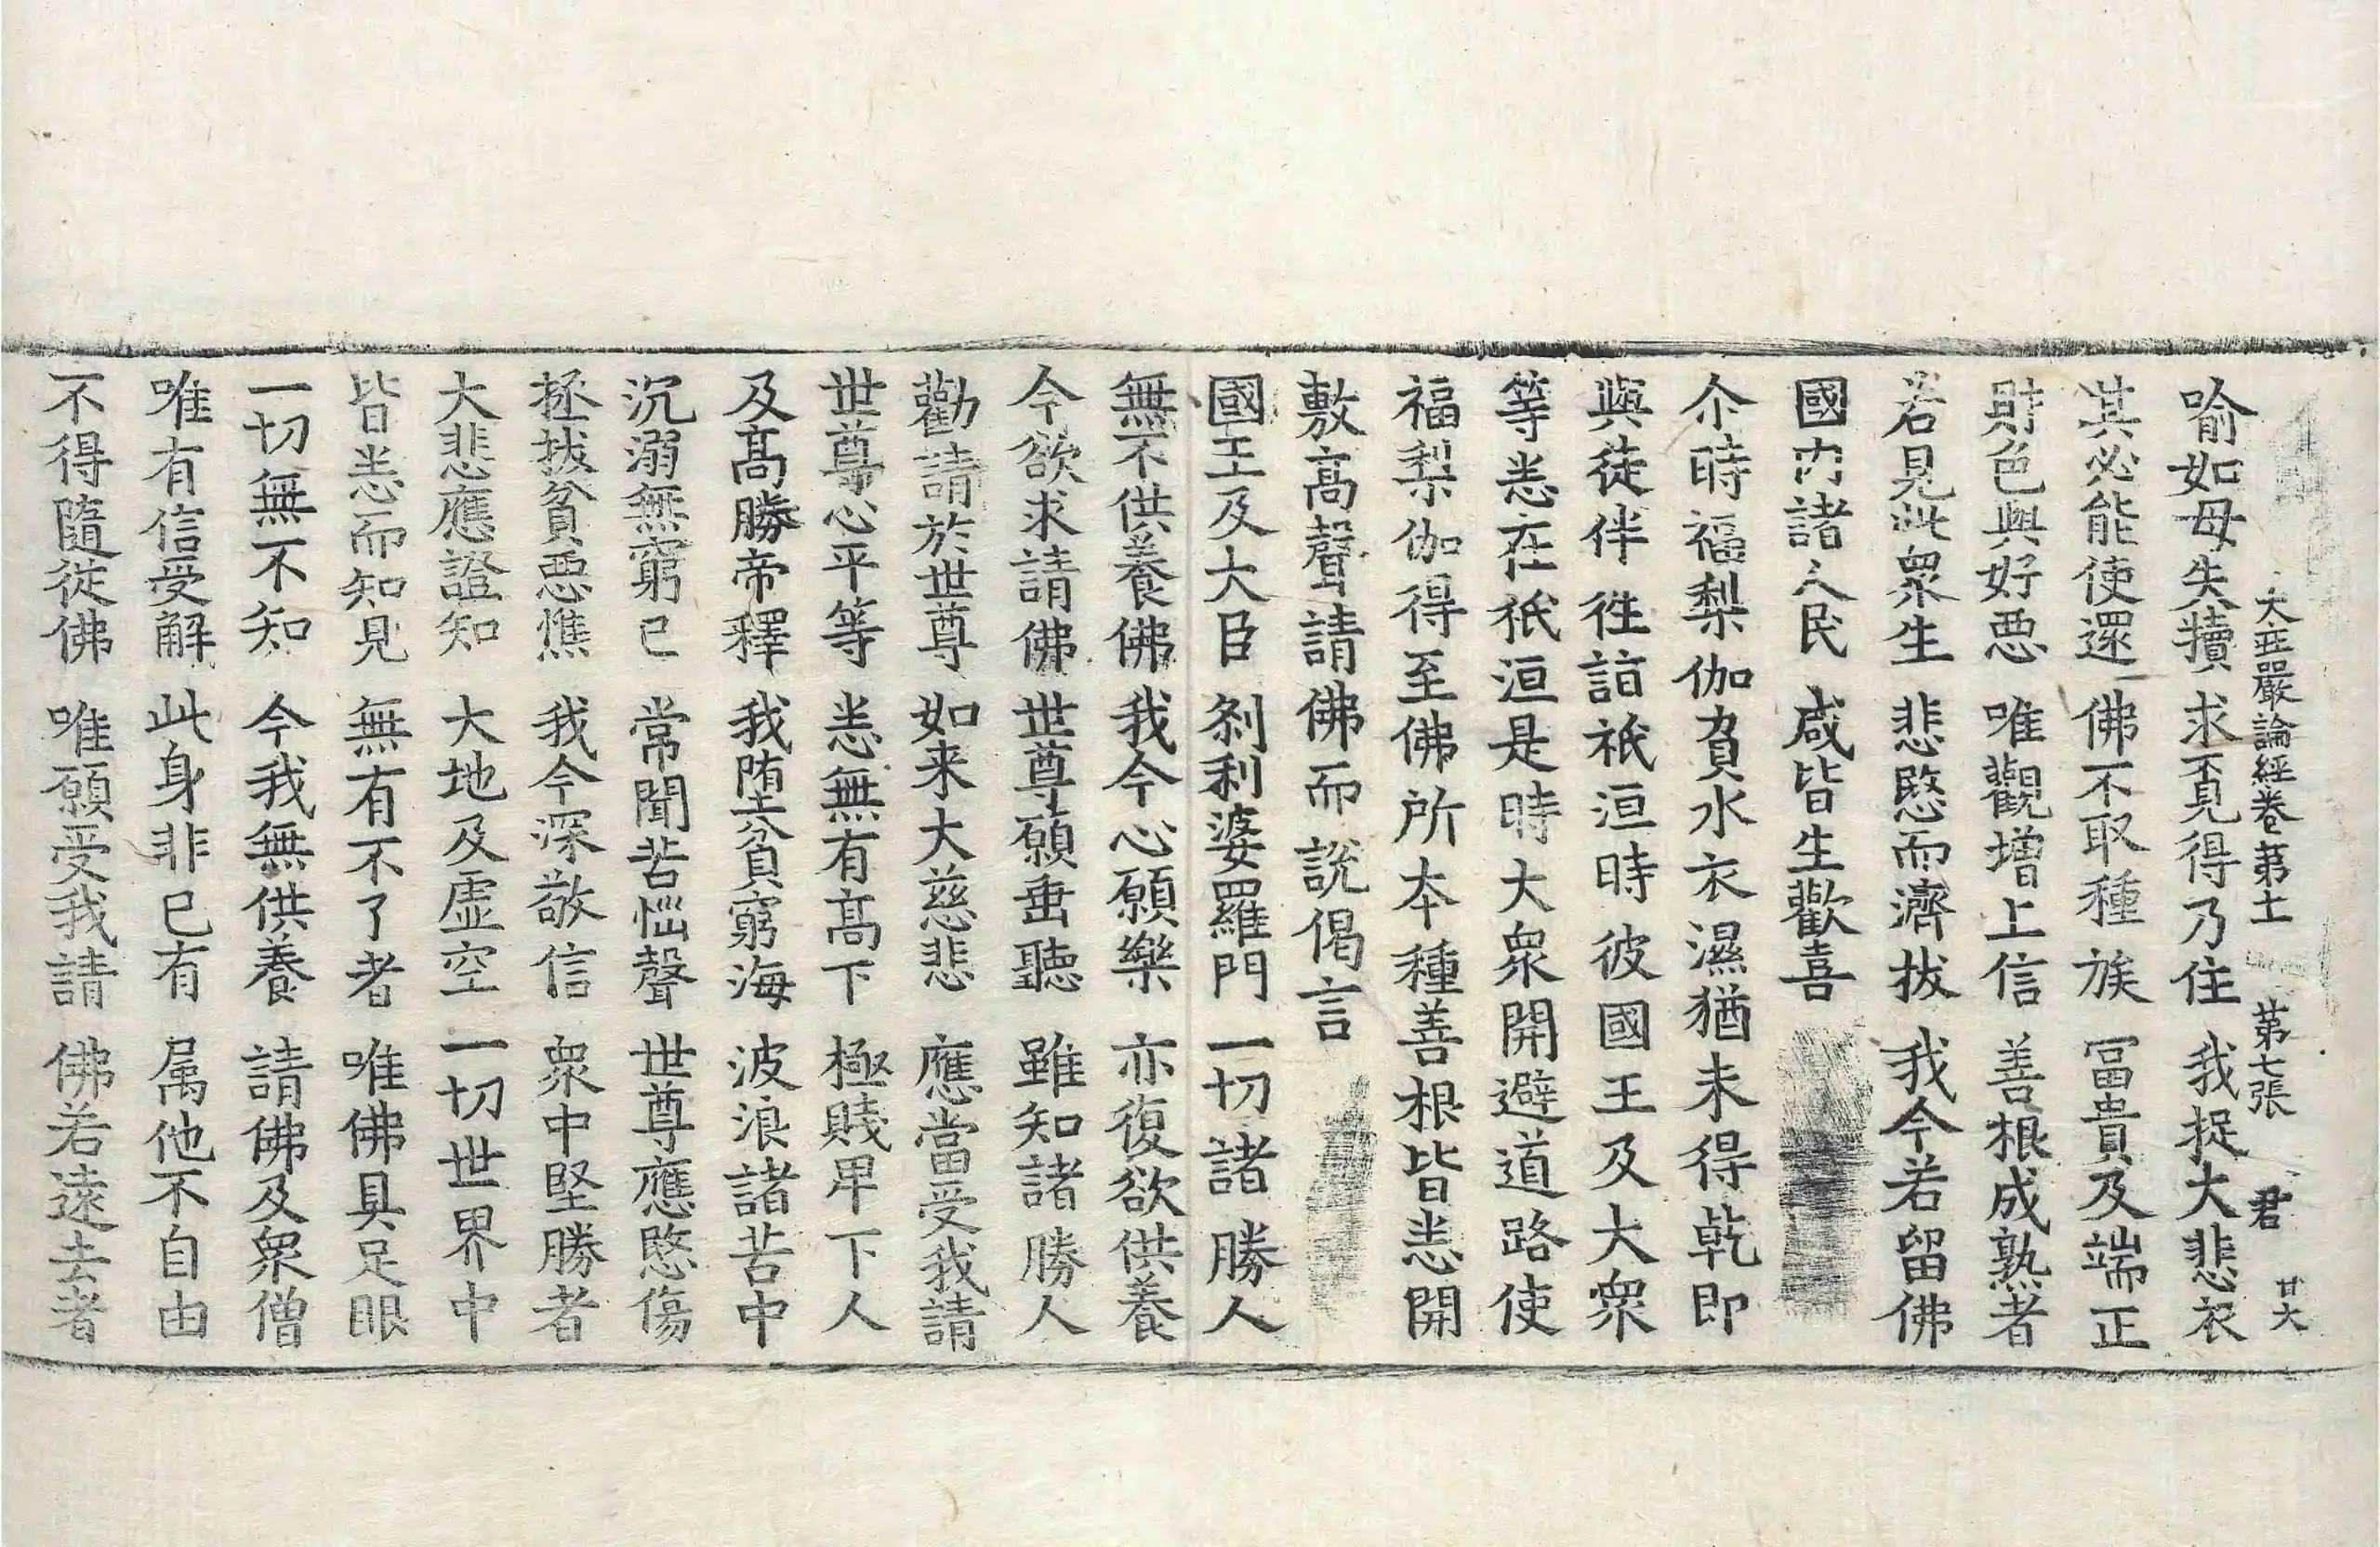 大𤴓嚴論經卷第十一 第七張 君 廿大
喻如母失犢 求覓得乃住 我捉大悲衣
其必能使還 佛不取種族 冨貴及端正
財色與好惡 唯觀增上信 善根成熟者
若見此衆生 悲愍而濟拔 我今若留佛
國内諸人民 咸皆生歡喜
尒時福梨伽負水衣濕猶未得乾即
與徒伴徃詣祇洹時彼國王及大衆
等悉在祇洹是時大衆開避道路使
福梨伽得至佛所夲種善根皆悉開
敷高聲請佛而說偈言
國王及大臣 刹利婆羅門 一切諸勝人
無不供養佛 我今心願樂 亦復欲供養
今欲求請佛 世尊願垂聽 雖知諸勝人
勸請於世尊 如来大慈悲 應當受我請
世尊心平等 悉無有髙下 極賤卑下人
及髙勝帝釋 我堕貧窮海 波浪諸苦中
沉溺無窮已 常聞苦惱聲 世尊應愍傷
拯拔貧惡燋 我今深敬信 衆中堅勝者
大悲應證知 大地及虛空 一切世界中
皆悉而知見 無有不了者 唯佛具足眼
一切無不知 今我無供養 請佛及衆僧
唯有信受解 此身非已有 属他不自由
不得隨從佛 唯願受我請 佛若遠去者